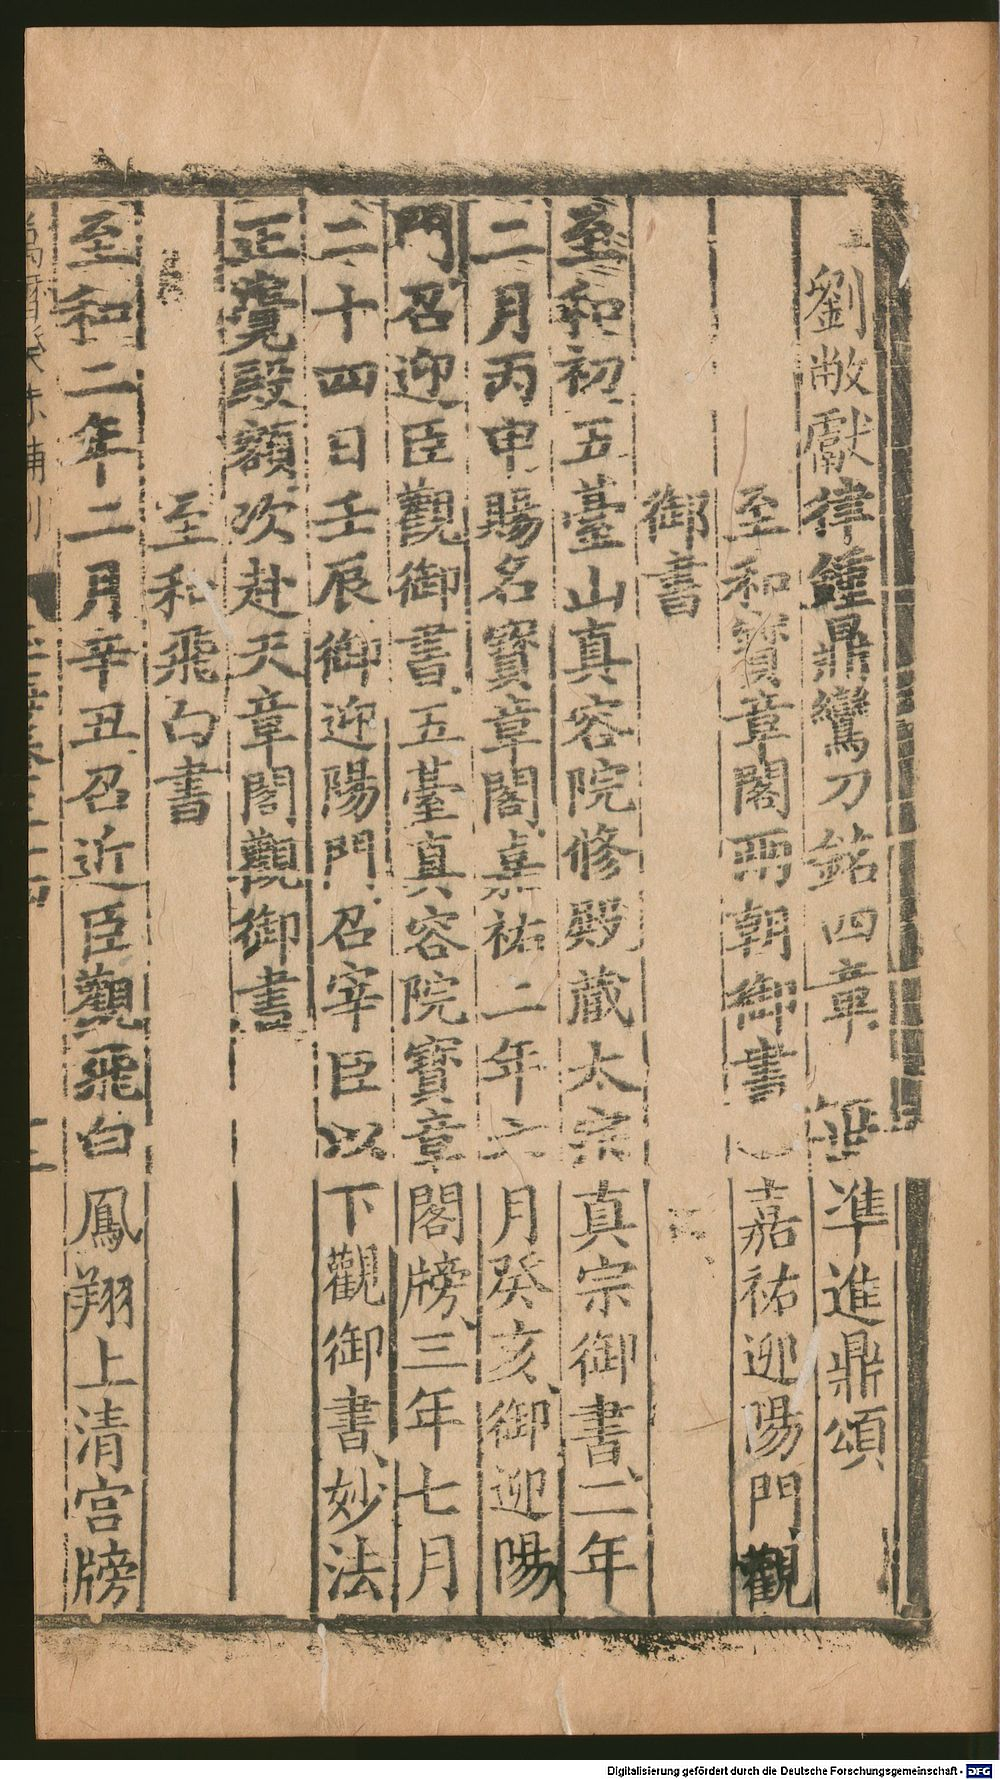 劉敞獻律鍾鼎鸞刀銘四章 準進鼎頌
至和寶章閣兩朝御書 嘉祐迎陽門觀
御書
至和初五臺山真容院修殿藏太宗真宗御書二年
二月丙申賜名寶章閣嘉祐二年六月癸亥御迎陽
門召迎臣觀御書五臺真容院寶章閣牓三年七月
二十四日壬辰御迎陽門召宰臣以下觀御書妙法
正覺殿額次赴天章閣觀御書
至和飛白書
至和二年二月辛丑召近臣觀飛白鳳翔上清宮牓
Digitalisierung gefördert durch die Deutsche Forschungsgemeinschaft - DFG